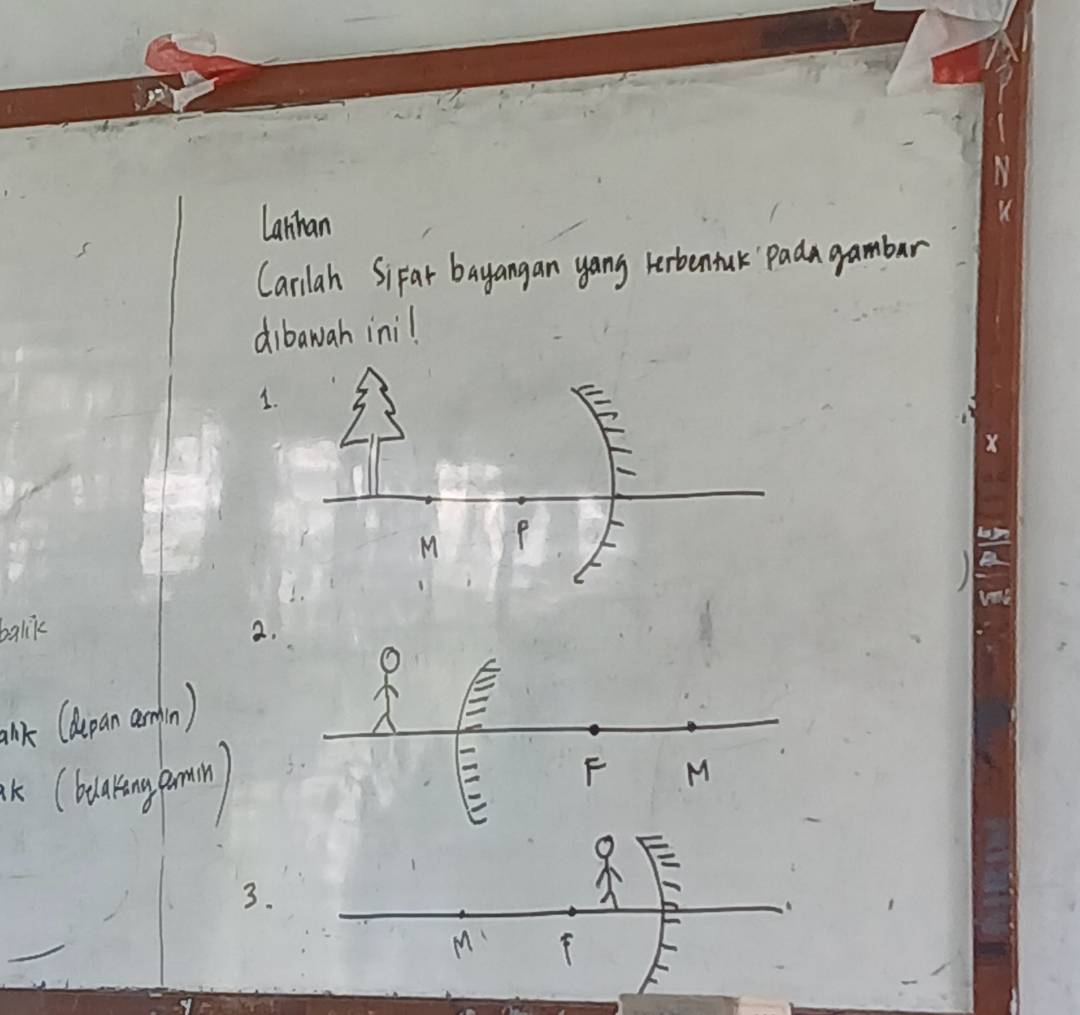 Latihan
Carilah Sifat bayangan yang terbentuk pada gambar
dibawah ini!
1.
M F
2.
F M
3.
M F
balik
(depan cermin)
(belakang cermin)
PINK
X